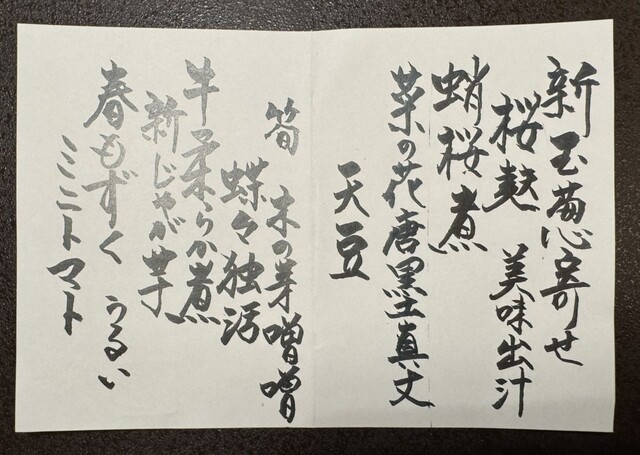 新玉葱寄せ
桜麩 美味出汁
蛸桜煮
菜の花唐墨真丈
天豆
筍 木の芽噌噌
蝶々独活
牛柔らか煮
新じゃが芋
春もずく うるい
ミニトマト